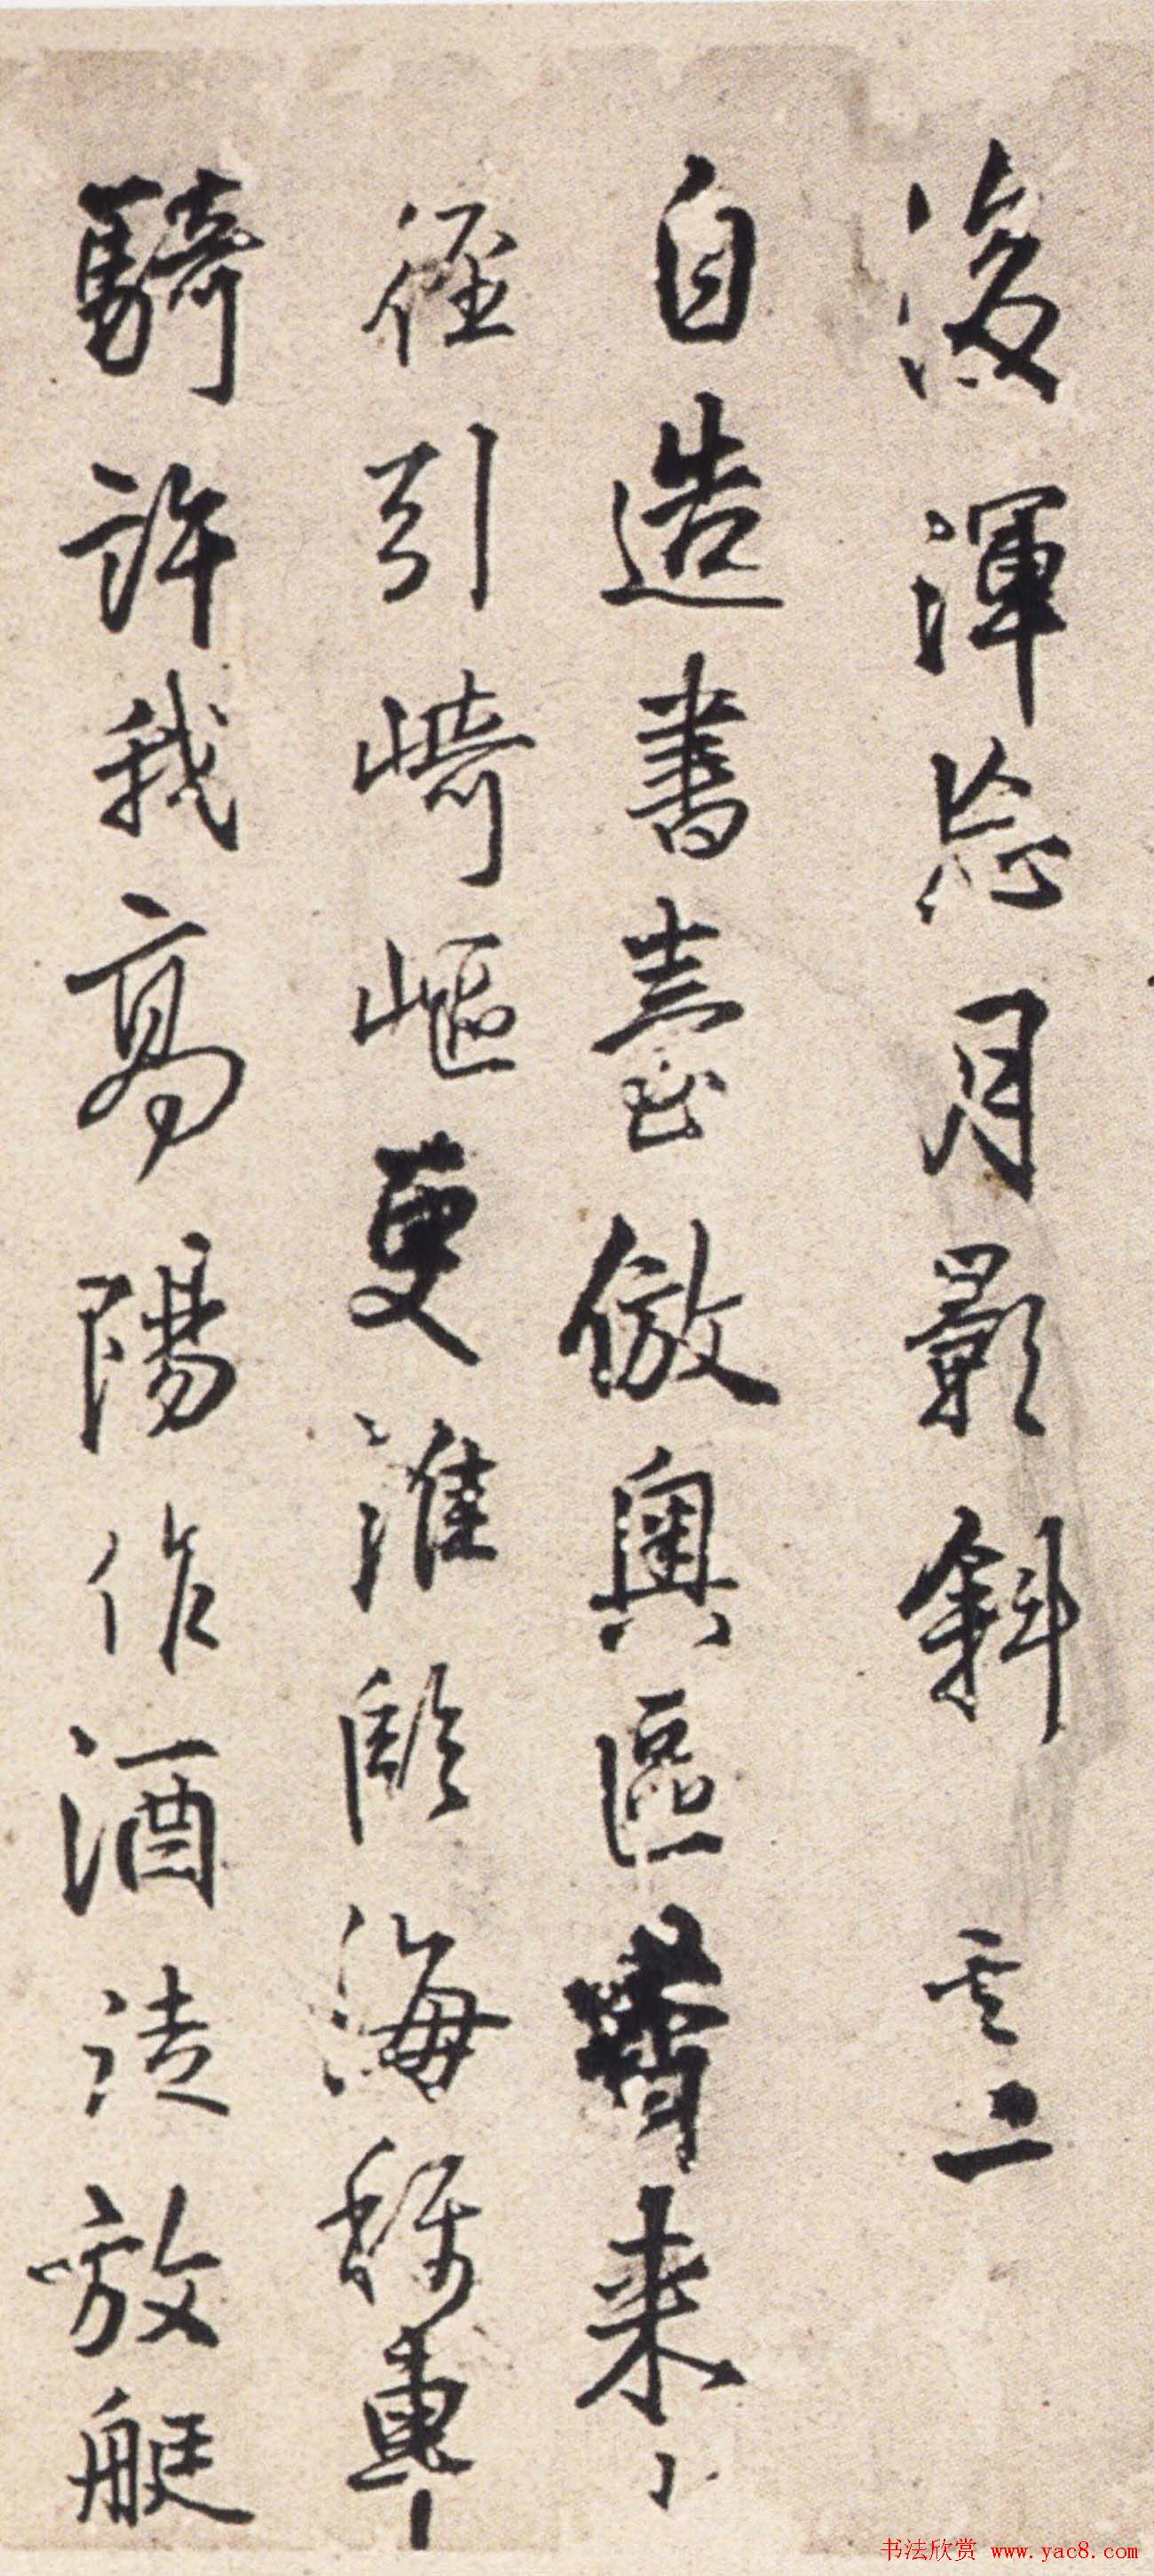 後渾忘月影斜 其二
自造書臺倣奧區来
徑引崎嶇更淮臨海稱車
騎許我高陽作酒徒放艇
书法欣赏 www.yac8.com